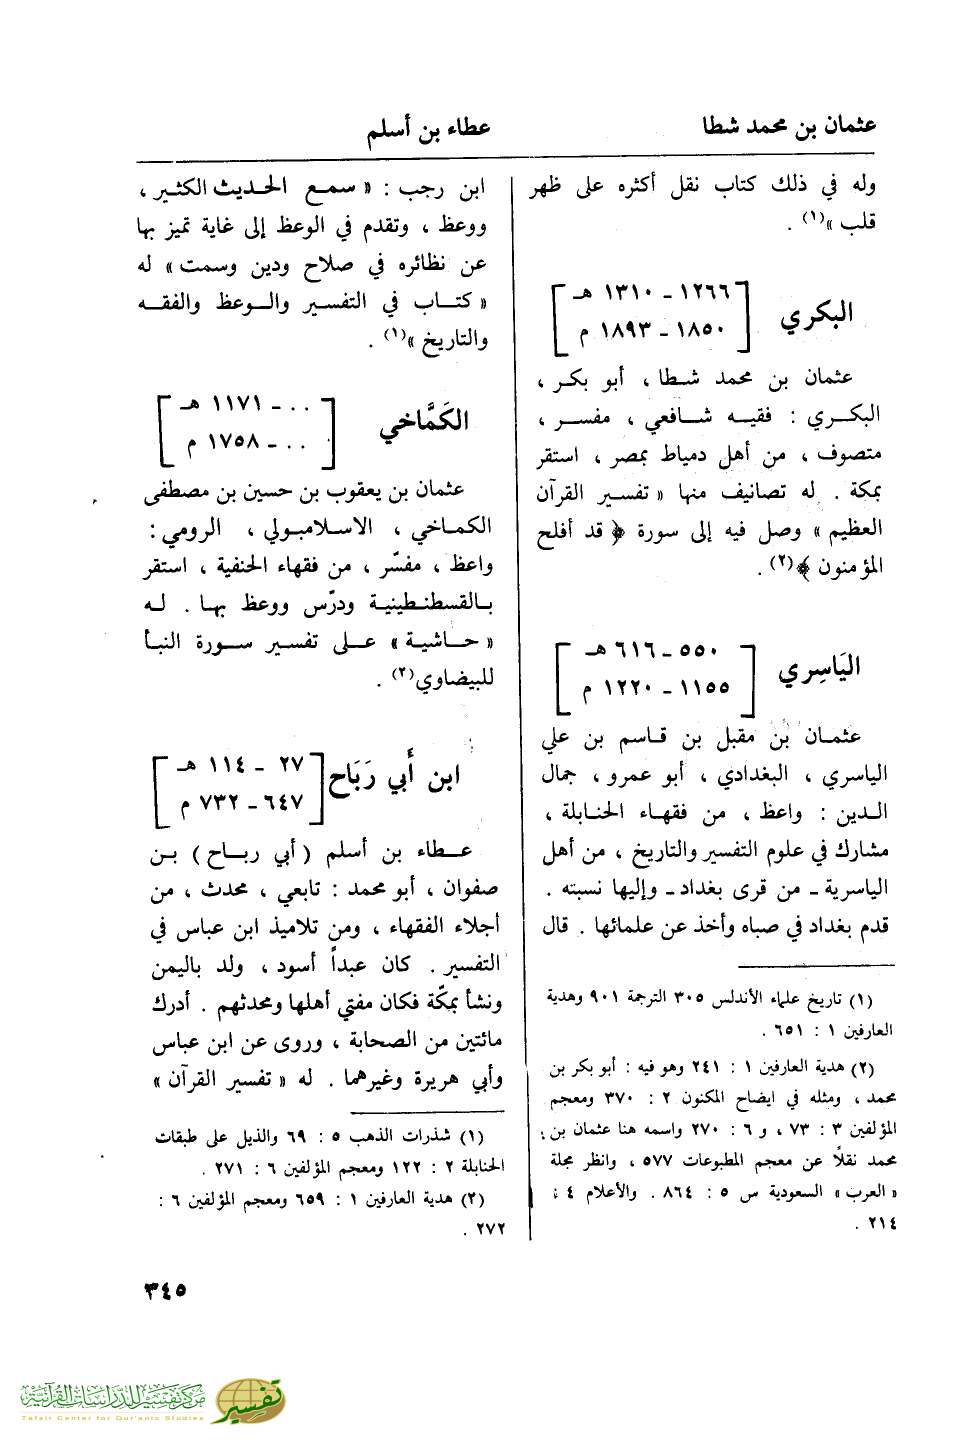 عثمان بن محمد شطا
عطاء بن أسلم
وله في ذلك كتاب نقل أكثره على ظهر
قلب »(١) .
البكري
١٢٦٦ ـ ١٣١٠ هـ
١٨٥٠ ـ ١٨٩٣ م
عثمان بن محمد شطا ، أبو بكر ،
البكري : فقيه شافعي ، مفسر ،
متصوف ، من أهل دمياط بمصر ، استقر
بمكة . له تصانيف منها « تفسير القرآن
العظيم » وصل فيه إلى سورة ﴿ قد أفلح
المؤمنون ﴾(٢) .
اليَاسِري
٥٥٠ ـ ٦١٦ هـ
١١٥٥ ـ ١٢٢٠ م
عثمان بن مقبل بن قاسم بن علي
الياسري ، البغدادي ، أبو عمرو ، جمال
الدين : واعظ ، من فقهاء الحنابلة ،
مشارك في علوم التفسير والتاريخ ، من أهل
الياسرية ـ من قرى بغداد ـ وإليها نسبته .
قدم بغداد في صباه وأخذ عن علمائها . قال
(١) تاريخ علماء الأندلس ٣٠٥ الترجمة ٩٠١ وهدية
العارفين ١ : ٦٥١ .
(٢) هدية العارفين ١ : ٢٤١ وهو فيه : أبو بكر بن
محمد ، ومثله في ايضاح المكنون ٢ : ٣٧٠ ومعجم
المؤلفين ٣ : ٧٣ ، و ٦ : ٢٧٠ واسمه هنا عثمان بن
محمد نقلاً عن معجم المطبوعات ٥٧٧ ، وانظر مجلة
« العرب » السعودية س ٥ : ٨٦٤ . والأعلام ٤ :
٢١٤ .
ابن رجب : « سمع الحديث الكثير ،
ووعظ ، وتقدم في الوعظ إلى غاية تميز بها
عن نظائره في صلاح ودين وسمت » له
« كتاب في التفسير والوعظ والفقه
والتاريخ »(١) .
الكَمَّاخي
.. ـ ١١٧١ هـ
.. ـ ١٧٥٨ م
عثمان بن يعقوب بن حسين بن مصطفى
الكماخي ، الاسلامبولي ، الرومي :
واعظ ، مفسّر ، من فقهاء الحنفية ، استقر
بالقسطنطينية ودرّس ووعظ بها . له
« حاشية » على تفسير سورة النبأ
للبيضاوي(٢) .
ابن أبي رَبَاح
٢٧ ـ ١١٤ هـ
٦٤٧ ـ ٧٣٢ م
عطاء بن أسلم ( أبي رباح ) بن
صفوان ، أبو محمد : تابعي ، محدث ، من
أجلاء الفقهاء ، ومن تلاميذ ابن عباس في
التفسير . كان عبداً أسود ، ولد باليمن
ونشأ بمكّة فكان مفتي أهلها ومحدثهم . أدرك
مائتين من الصحابة ، وروى عن ابن عباس
وأبي هريرة وغيرهما . له « تفسير القرآن »
(١) شذرات الذهب ٥ : ٦٩ والذيل على طبقات
الحنابلة ٢ : ١٢٢ ومعجم المؤلفين ٦ : ٢٧١ .
(٢) هدية العارفين ١ : ٦٥٩ ومعجم المؤلفين ٦ :
٢٧٢ .
٣٤٥
مركز تفسير للدراسات القرآنية
Tafsir Center for Qur'anic Studies
تفسير